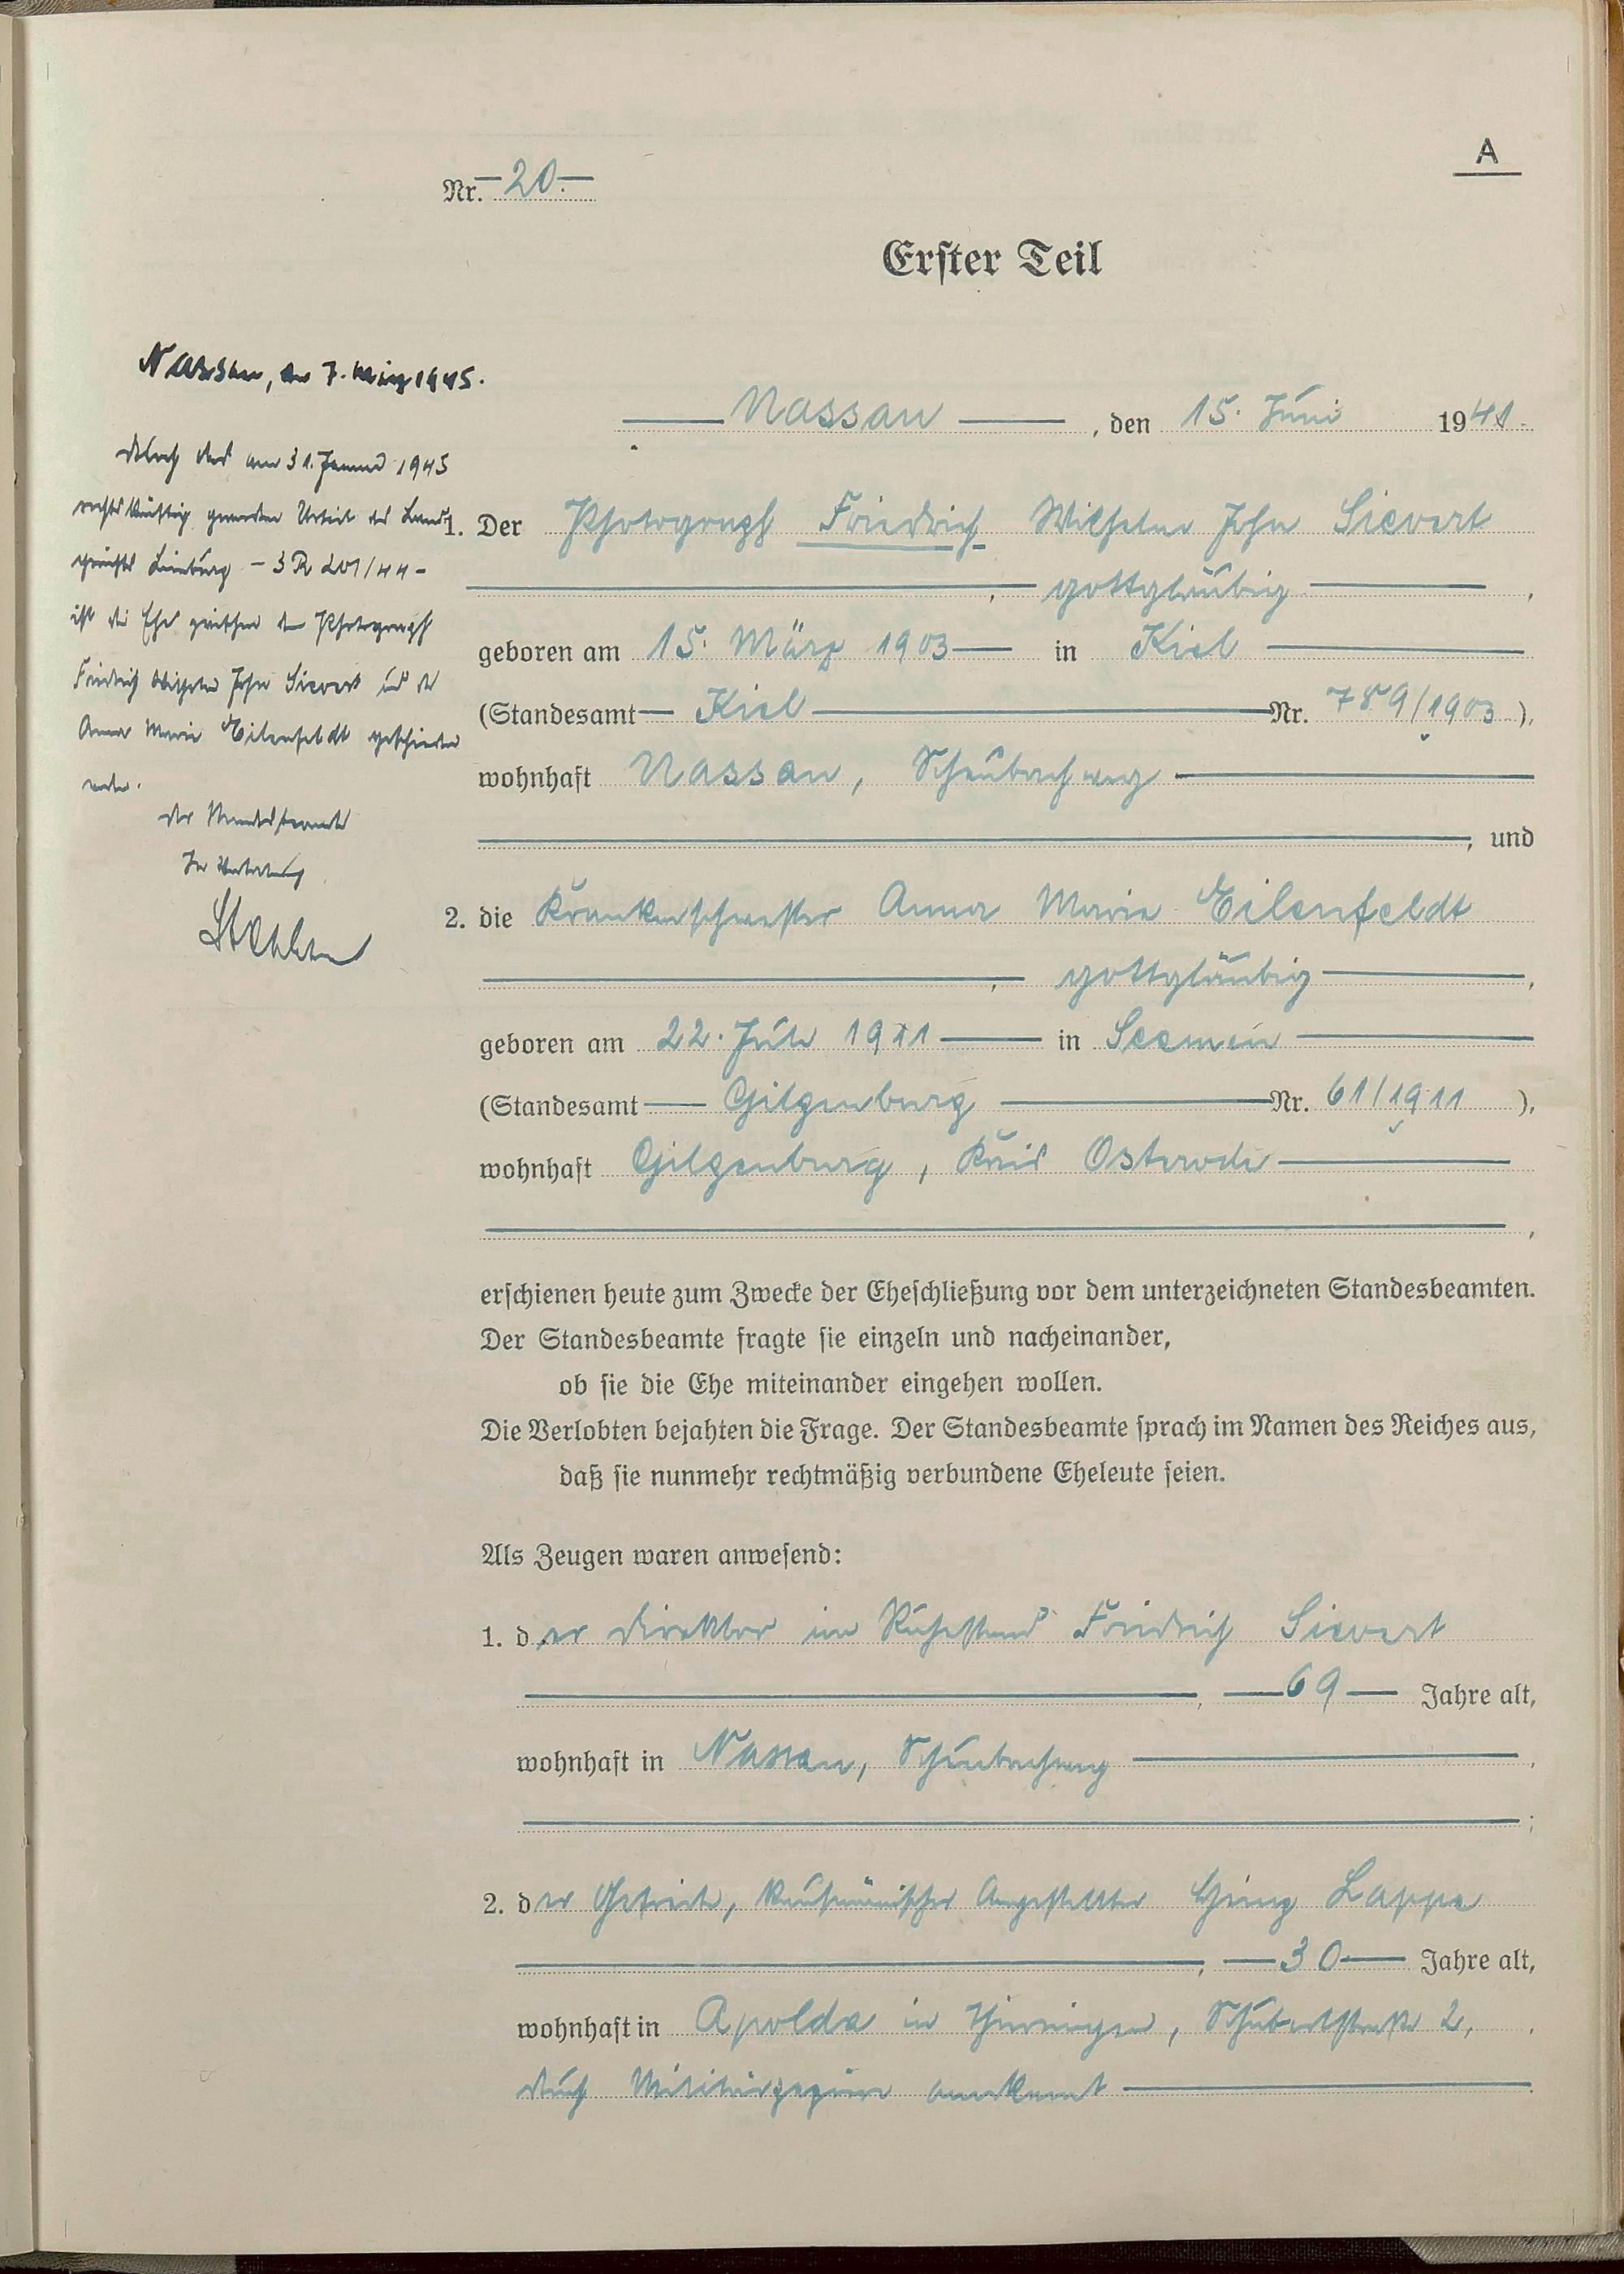 A
Nr. – 20. –
Erster Teil
Nassau, den 7. März 1945.
Durch das am 31. Januar 1945
rechtskräftig gewordene Urteil des Land-
gerichts Limburg – 3 R 201/44 –
ist die Ehe zwischen dem Photograph
Friedrich Wilhelm John Sievert und der
Anna Marie Eilenfeldt geschieden
worden.
Der Standesbeamte
In Vertretung
Nassau, den 15. Juni 1941.
1. Der Photograph Friedrich Wilhelm John Sievert
, gottgläubig,
geboren am 15. März 1903 in Kiel
(Standesamt Kiel Nr. 789/1903),
wohnhaft Nassau, Scheubachweg
, und
2. die Krankenschwester Anna Marie Eilenfeldt
, gottgläubig,
geboren am 22. Juli 1911 in Seemen
(Standesamt Gilgenburg Nr. 61/1911),
wohnhaft Gilgenburg, Kreis Osterode
,
erschienen heute zum Zwecke der Eheschließung vor dem unterzeichneten Standesbeamten.
Der Standesbeamte fragte sie einzeln und nacheinander,
ob sie die Ehe miteinander eingehen wollen.
Die Verlobten bejahten die Frage. Der Standesbeamte sprach im Namen des Reiches aus,
daß sie nunmehr rechtmäßig verbundene Eheleute seien.
Als Zeugen waren anwesend:
1. der Direktor im Ruhestand Friedrich Sievert
, 69 Jahre alt,
wohnhaft in Nassau, Scheubachweg,
;
2. der Gefreite, kaufmännischer Angestellter Heinz Lappe
, 30 Jahre alt,
wohnhaft in Apolda in Thüringen, Schubertstraße 2,
durch Militärpapiere anerkannt